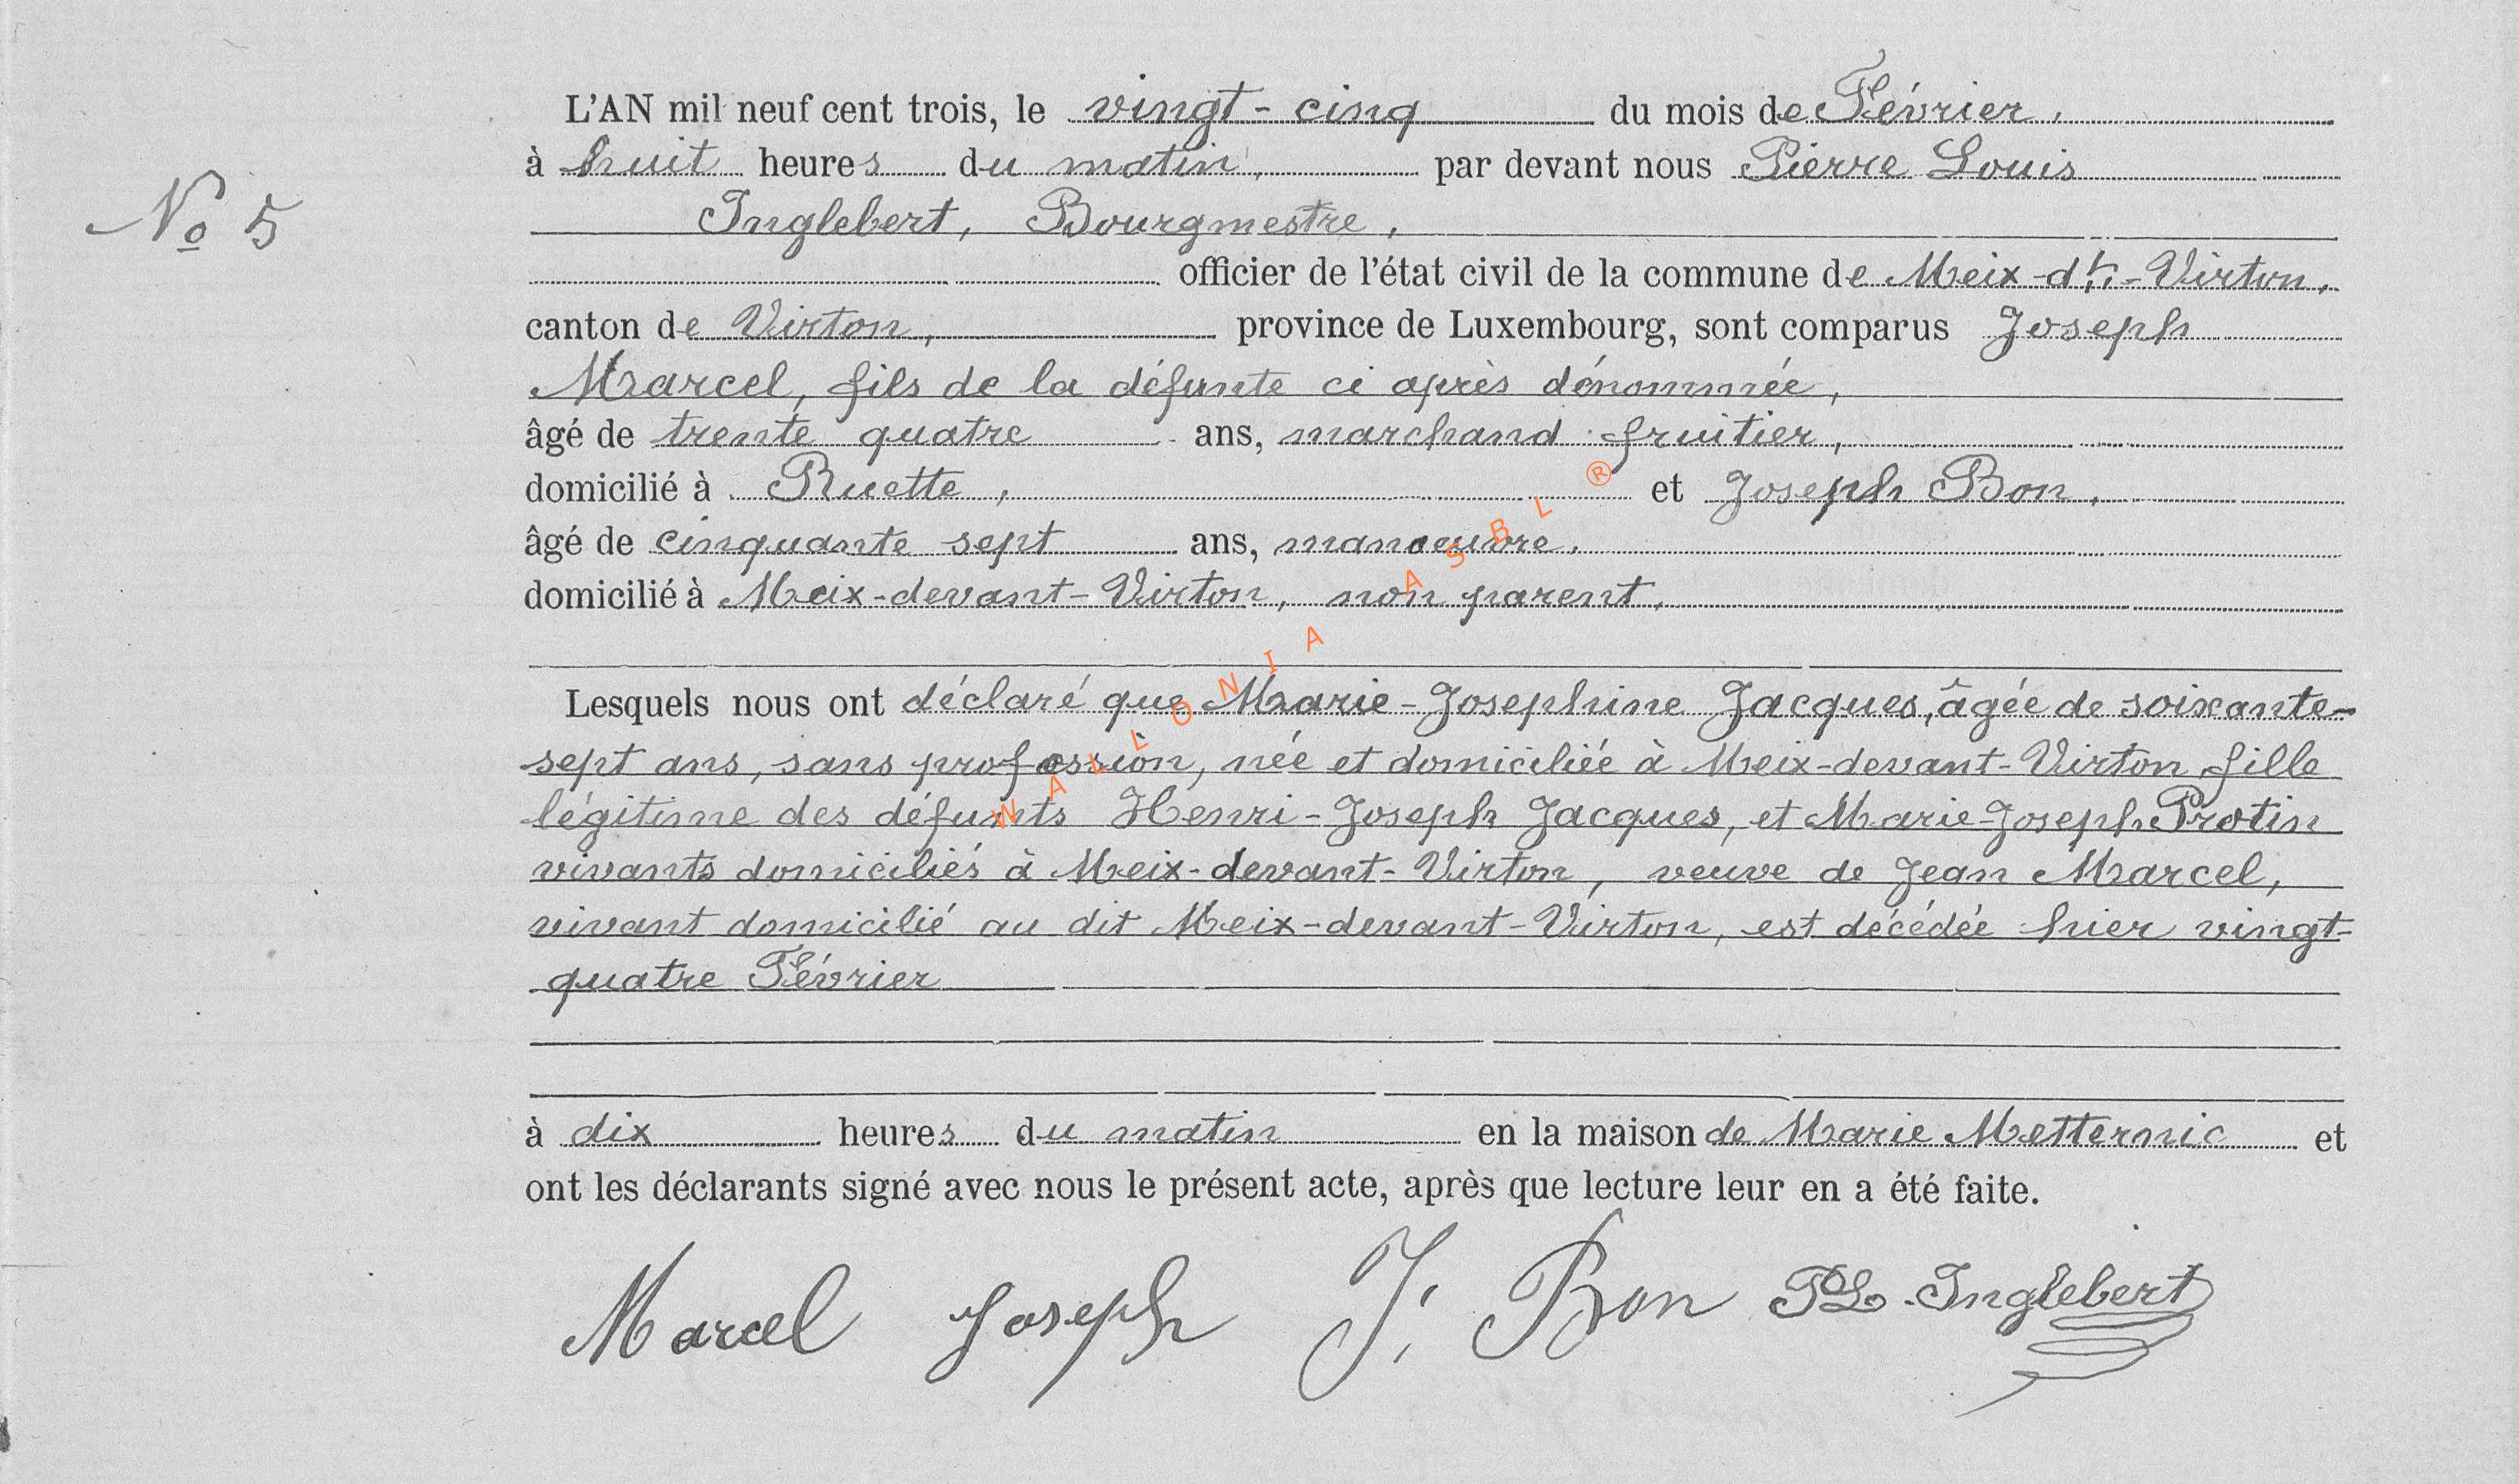 L'AN mil neuf cent trois, le vingt-cinq du mois de Février,
à huit heures du matin, par devant nous Pierre Louis
No 5
Inglebert, Bourgmestre,
officier de l'état civil de la commune de Meix-dt-Virton,
canton de Virton, province de Luxembourg, sont comparus Joseph
Marcel, fils de la défunte ci après dénommée,
âgé de trente quatre ans, marchand fruitier,
domicilié à Ruette, et Joseph Bon,
âgé de cinquante sept ans, manoeuvre,
domicilié à Meix-devant-Virton, non parent,
Lesquels nous ont déclaré que Marie-Josephine Jacques, âgée de soixante-
sept ans, sans profession, née et domiciliée à Meix-devant-Virton, fille
légitime des défunts Henri-Joseph Jacques, et Marie-Joseph Protin
vivants domiciliés à Meix-devant-Virton, veuve de Jean Marcel,
vivant domicilié au dit Meix-devant-Virton, est décédée hier vingt-
quatre Février
à dix heures du matin en la maison de Marie Metternic et
ont les déclarants signé avec nous le présent acte, après que lecture leur en a été faite.
Marcel Joseph J. Bon PL. Inglebert
WALLONIA ASBL ®